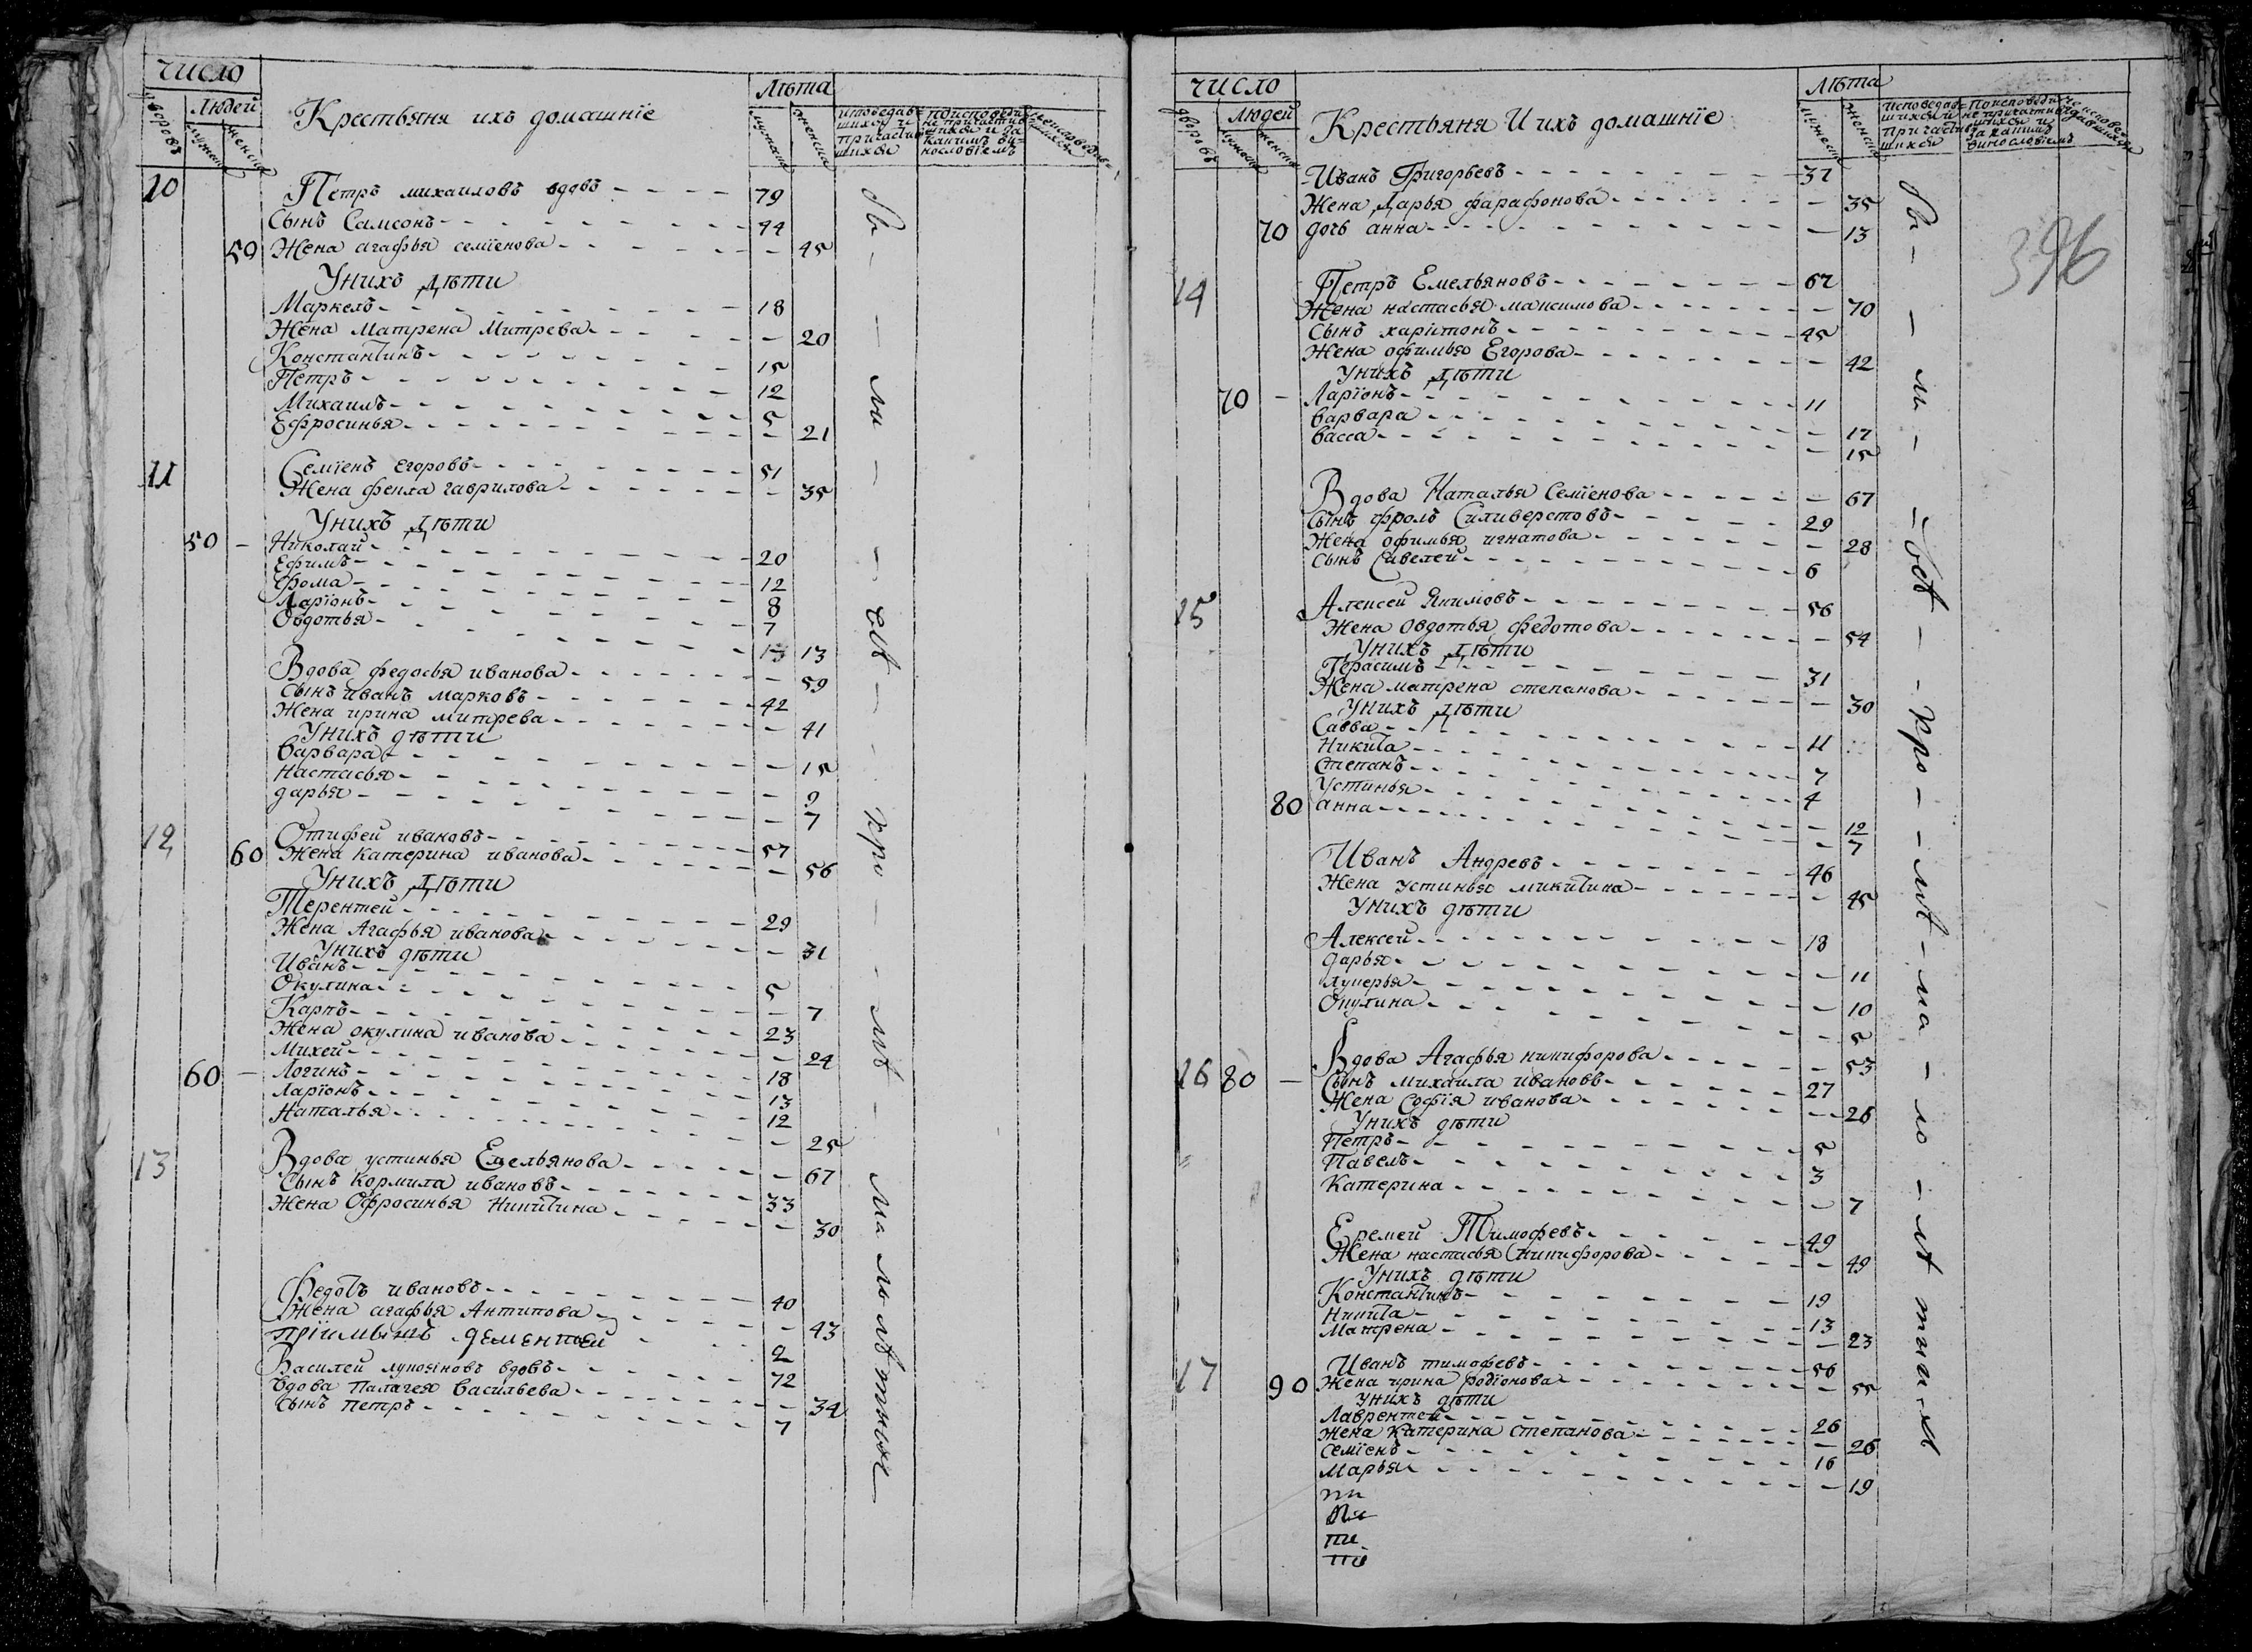 число
Лѣта
дворовъ
Людей
мужеска
женска
Крестьяня ихъ домашнїе
мужеска
женска
исповедав=
шихся и
причастив
шихся
10 Петръ михаиловъ вдовъ 79
Сынъ Самсонъ 44
59 Жена агафья семїенова 45
Унихъ Дѣти
Маркелъ 18
Жена Матрена Митрева 20
Константинъ 15
Петръ 12
Михаилъ 5
Ефросинья 21
11 Семїенъ Егоровъ 51
Жена фекла гаврилова 35
Унихъ Дѣти
50 Николай 20
Ефимъ 12
Фома 8
Ларїонъ 7
Овдотья 13 13
Вдова федосья иванова 59
Сынъ иванъ марковъ 42
Жена ирина митрева 41
Унихъ дѣти
Варвара 15
Настасья 9
дарья 7
12 Отифей ивановъ 57
60 Жена катерина иванова 56
Унихъ Дѣти
Терентей 29
Жена Агафья иванова 31
Унихъ дѣти
Иванъ 5
Окулина 7
Карпъ 23
Жена окулина иванова 24
Михей 18
60 Логинъ 13
Ларїонъ 12
Наталья 25
13 Вдова устинья Емельянова 67
Сынъ Кормила ивановъ 33
Жена Офросинья Никитина 30
Федотъ ивановъ 40
Жена агафья Антипова 43
прїимышъ дементей 2
Василей лукояновъ вдовъ 72
вдова палагея васильева 34
Сынъ петръ 7
число
Лѣта
дворовъ
Людей
мужеска
женска
Крестьяня И ихъ домашнїе
мужеска
женска
исповедав=
шихся и
причастив
шихся
Иванъ Григорьевъ 37
Жена Дарья фарафонова 35
70 дочь анна 13
396
14 Петръ Емельяновъ 67
Жена настасья максимова 70
Сынъ харитонъ 45
Жена офимья Егорова 42
Унихъ Дѣти
70 Ларїонъ 11
варвара 17
васса 15
Вдова Наталья Семїенова 67
Сынъ фролъ Силиверстовъ 29
Жена офимья игнатова 28
сынъ Савелей 6
15 Алексей Якимовъ 56
Жена Овдотья федотова 54
Унихъ Дѣти
Герасимъ 31
Жена матрена степанова 30
Унихъ Дѣти
Савва 11
Никита 7
Степанъ 4
Устинья 12
80 анна 7
Иванъ Андревъ 46
Жена устинья микитина 45
Унихъ дѣти
Алексей 18
дарья 11
лукерья 10
Окулина 5
Вдова Агафья никифорова 53
16 80 Сынъ михаила ивановъ 27
Жена Софїя иванова 26
Унихъ дѣти
Петръ 5
Павелъ 3
Катерина 7
Еремей Тимофевъ 49
Жена настасья Никифорова 49
Унихъ дѣти
Константинъ 19
Никита 13
Матрена 23
17 Иванъ тимофевъ 56
90 Жена ирина родїонова 55
Унихъ дѣти
Лаврентей 26
Жена Катерина Степанова 26
Семїенъ 16
Марья 19